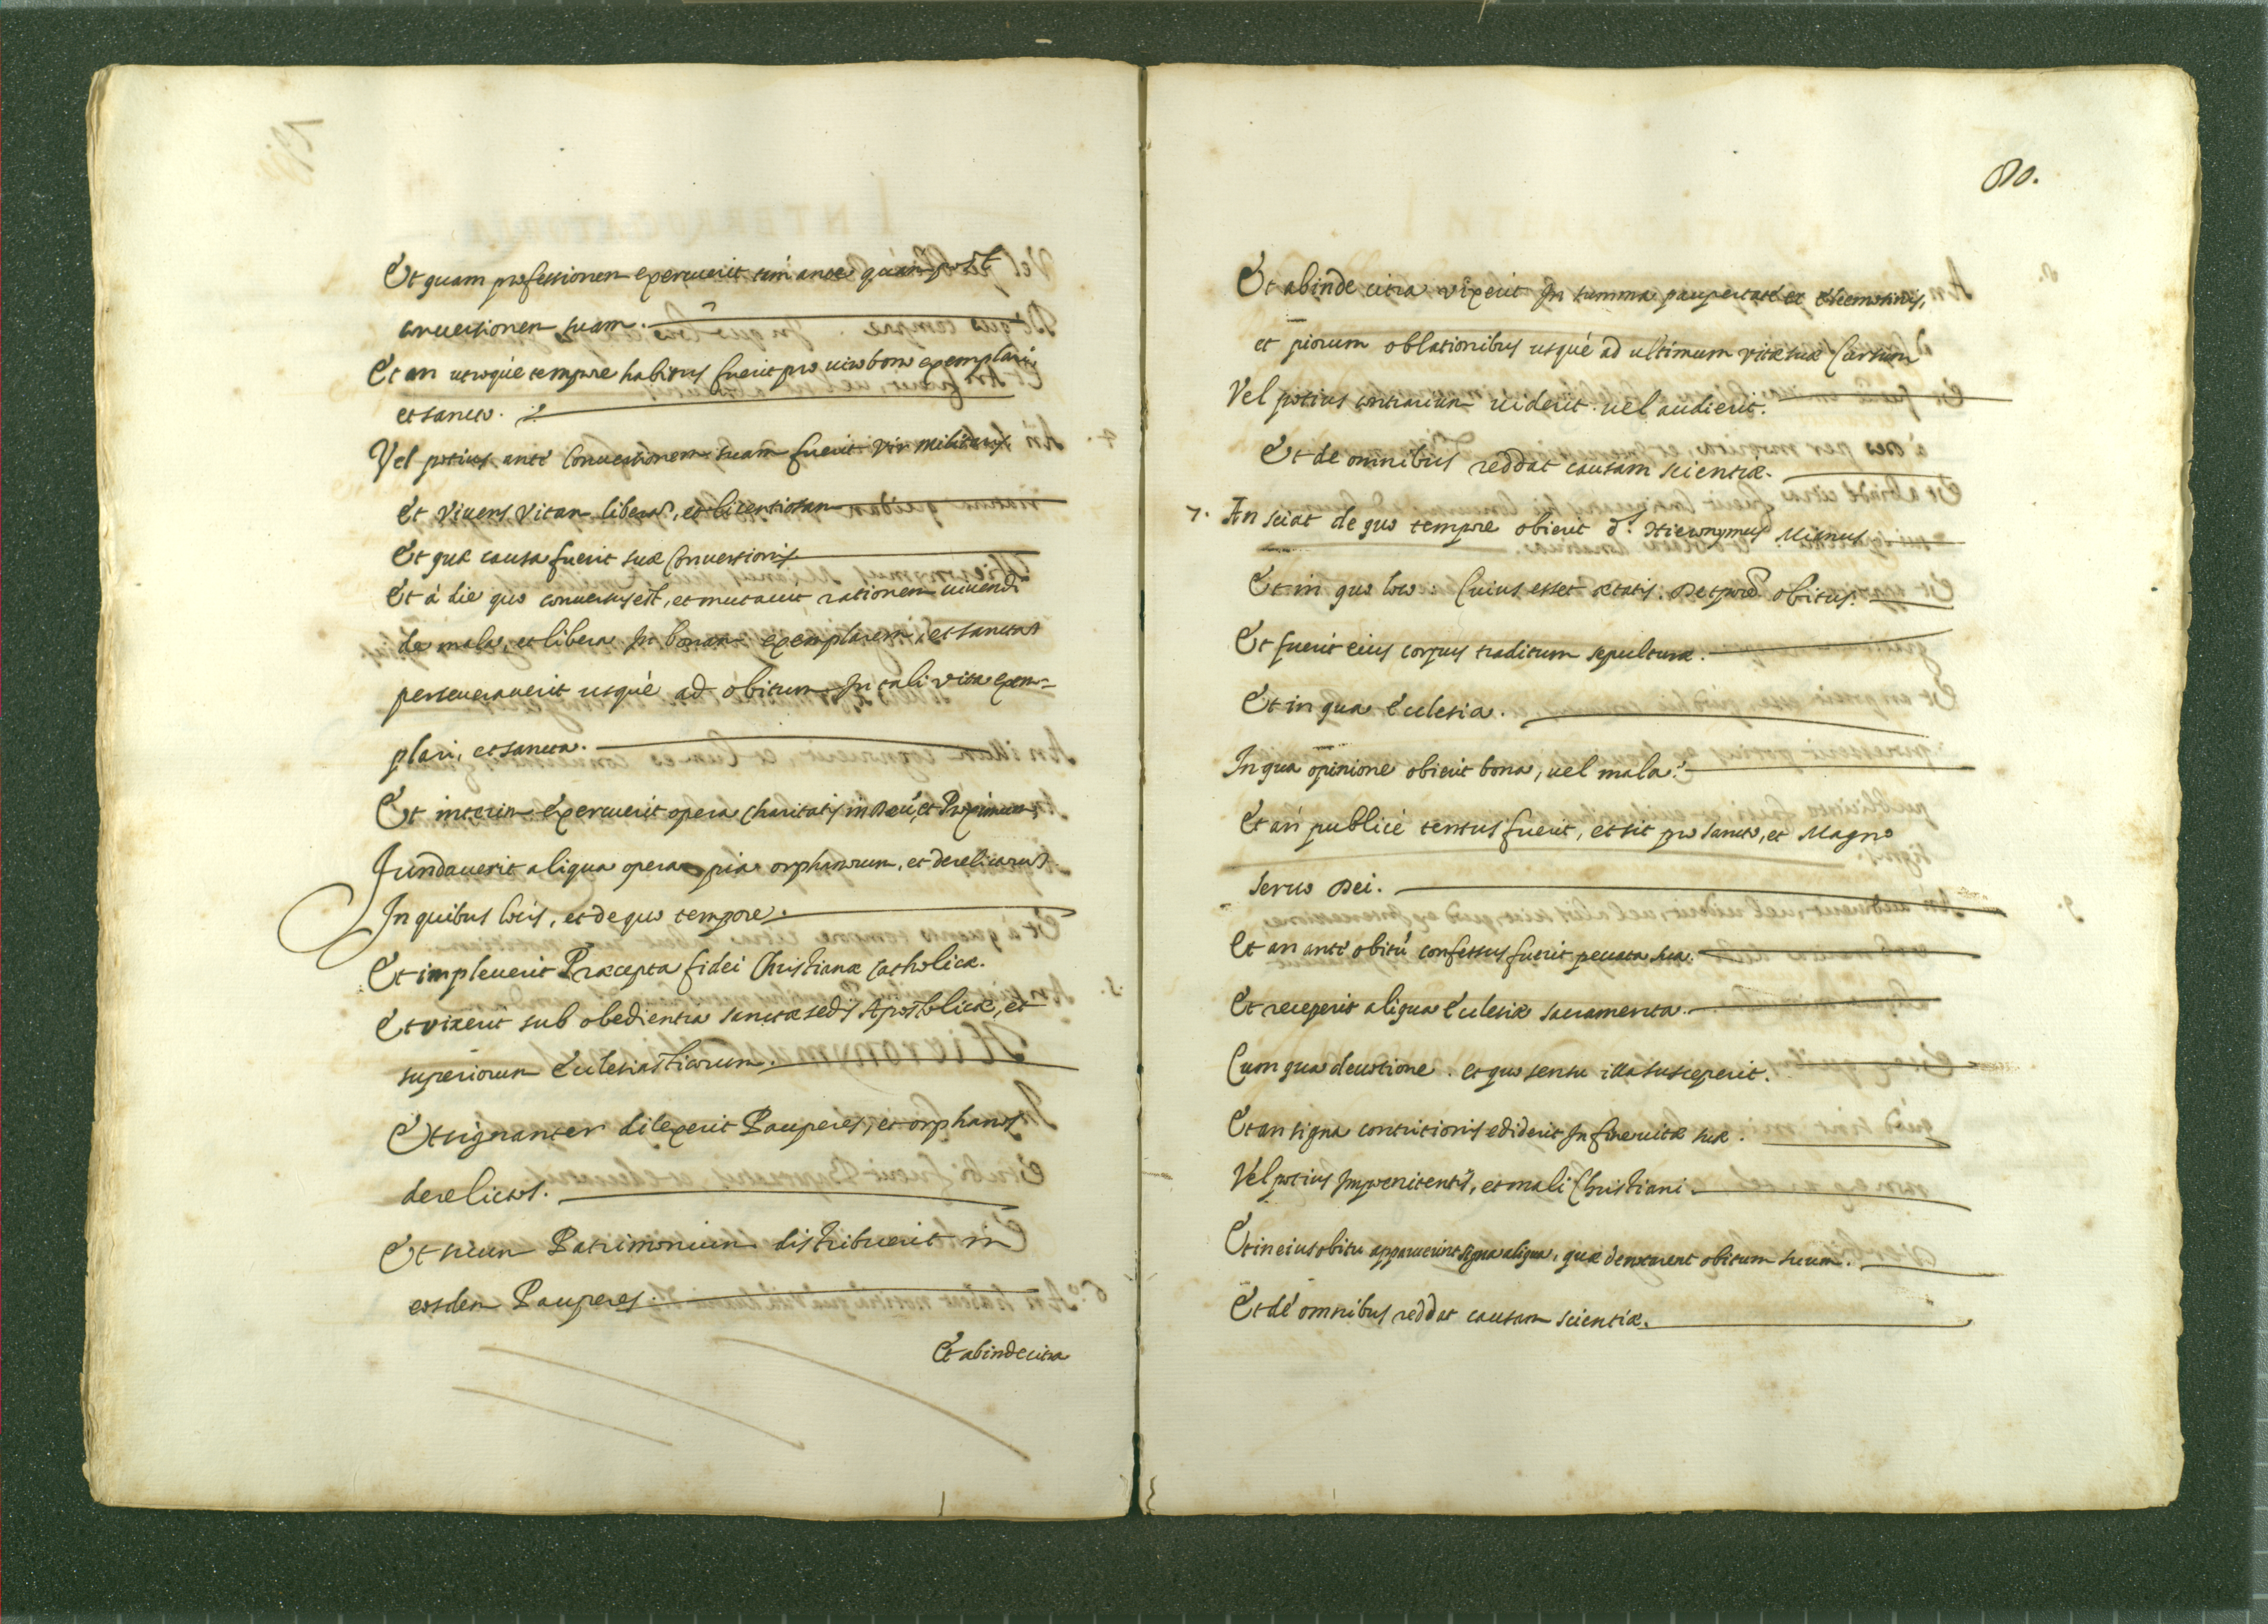 Et quam professionem exercuerit tam ante quam post
conuersionem suam.
Et an utroque tempore habitus fuerit pro uiro bono exemplari,
et sancto.
Vel potius ante Conuersionem suam fuerit vir militaris,
et viuens vitam liberam, et licentiosam
Et quæ causa fuerit suæ Conuersionis
Et à die quo conuersus est, et mutauit rationem uiuendi
de mala, et libera In bonam exemplarem, et sanctam
perseuerauerit usque ad obitum In tali vita exem=
plari, et sancta.
Et interim exercuerit opera Charitatis in Deũ, et Proximum,
Fundauerit aliqua opera pia orphanorum, et derelictorum
In quibus locis, et de quo tempore.
Et impleuerit Præcepta fidei Christianæ Catholicæ.
Et vixerit sub obedientia sanctæ sedis Apostolicæ, et
superiorum Ecclesiasticorum.
Et signanter dilexerit Pauperes, et orphanos
derelictos.
Et suum Patrimonium distribuerit in
eosdem Pauperes.
Et abinde citra
80.
Et abinde citra vixerit In summa paupertate et elleemosinis,
et piorum oblationibus usque ad ultimum vitæ suæ Cursum
Vel potius contrarium uiderit uel audierit.
Et de omnibus reddat causam scientiæ.
7. An sciat de quo tempore obierit D. Hieronymus Mianus
Et in quo loco. Cuius esset ætatis. De tpore obitus.
Et fuerit eius corpus traditum sepulturæ.
Et in qua Ecclesia.
In qua opinione obierit bona, uel mala.
Et an publicè tentus fuerit, et sit pro sancto, et Magno
seruo Dei.
Et an ante obitũ confessus fuerit peccata sua.
Et receperit aliqua Ecclesiæ sacramenta.
Cum qua deuotione. et quo sensu illa susceperit.
Et an signa contritionis ediderit In fine vitæ suæ.
Vel potius Impoenitentis, et mali Christiani.
Et in eius obitu apparuerint signa aliqua, quæ denotarent obitum suum.
Et de omnibus reddat causam scientiæ.